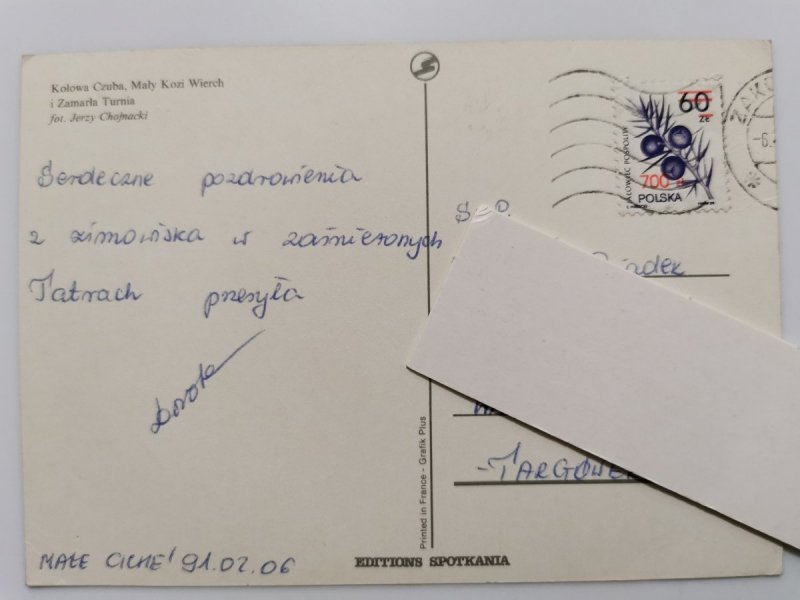 Kołowa Czuba, Mały Kozi Wierch
i Zamarła Turnia
fot. Jerzy Chojnacki
Serdeczne pozdrowienia
z zimowiska w zaśnieżonych
Tatrach przesyła
Dorota
MAŁE CICHE '91.02.06
Printed in France - Grafik Plus
EDITIONS SPOTKANIA
60
zł
700 zł
POLSKA
JAŁOWIEC POSPOLITY
S.P.
-TARGÓWEK